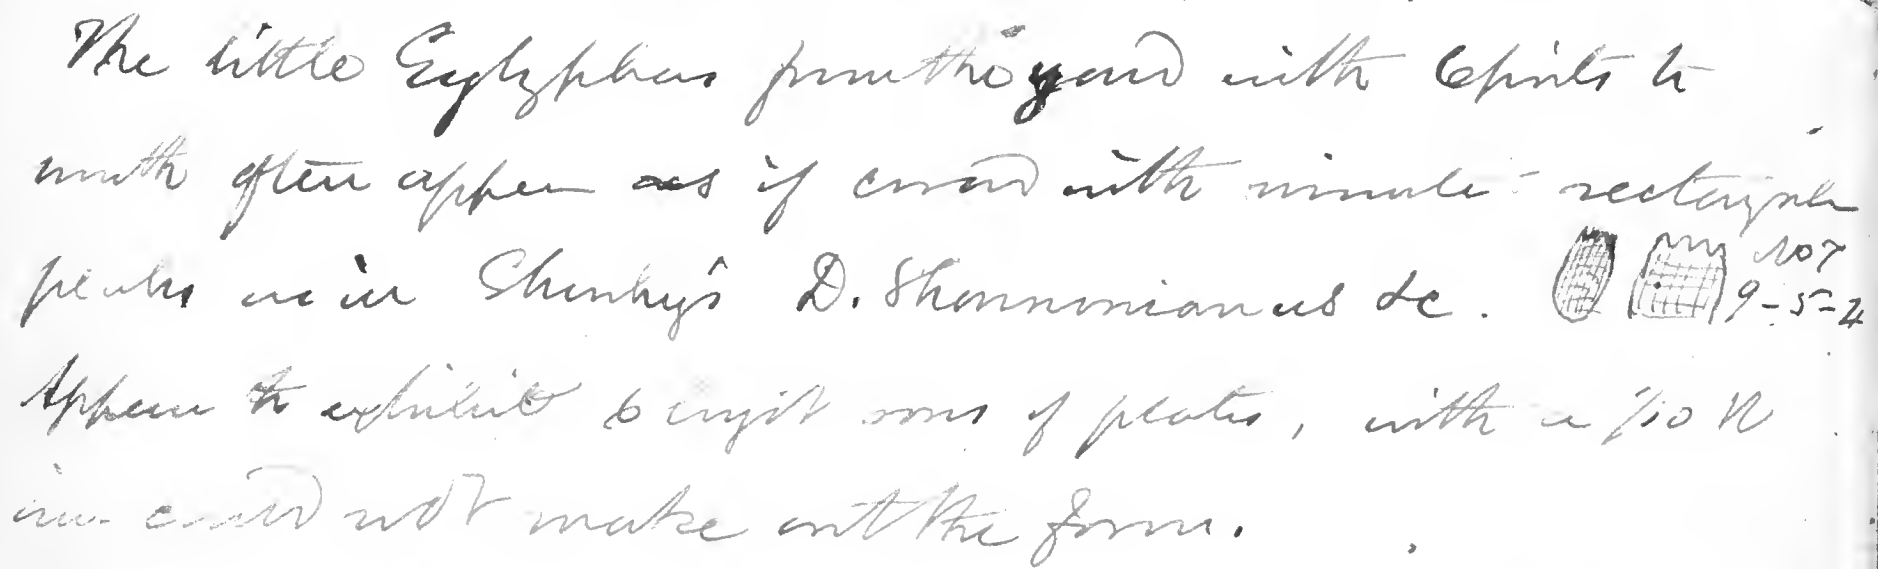 The little Euglyphas from the yard with 6 points to
mouth often appear as if covered with minute rectangular
plates as in D. Shannonianus &c. 107
9-5-4
Appear to exhibit 6 longit rows of plates, with a 1/10 N
im. could not make out the form.